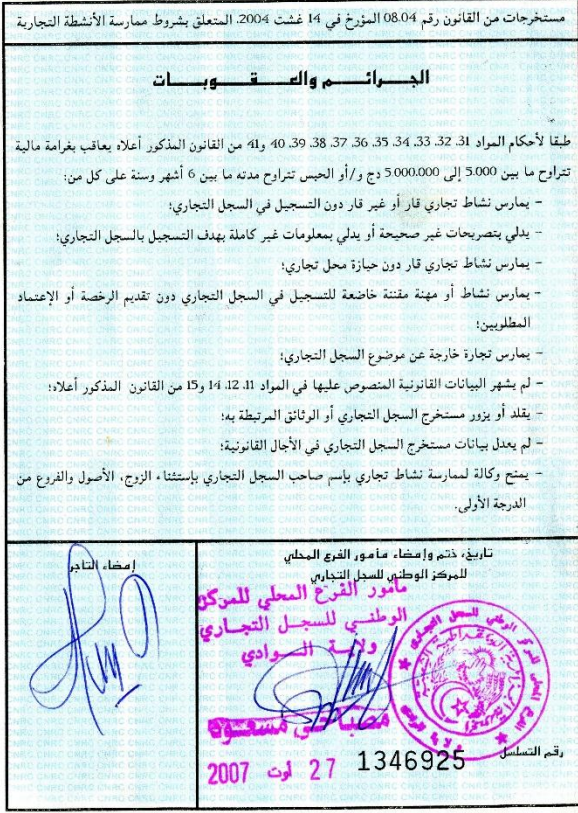 مستخرجات من القانون رقم 08.04 المؤرخ في 14 غشت 2004، المتعلق بشروط ممارسة الأنشطة التجارية
الجرائم والعقوبات
طبقا لأحكام المواد 31، 32، 33، 34، 35، 36، 37، 38، 39، 40 و41 من القانون المذكور أعلاه يعاقب بغرامة مالية
تتراوح ما بين 5.000 إلى 5.000.000 دج و/أو الحبس تتراوح مدته ما بين 6 أشهر وسنة على كل من:
- يمارس نشاط تجاري قار أو غير قار دون التسجيل في السجل التجاري؛
- يدلي بتصريحات غير صحيحة أو يدلي بمعلومات غير كاملة بهدف التسجيل بالسجل التجاري؛
- يمارس نشاط تجاري قار دون حيازة محل تجاري؛
- يمارس نشاط أو مهنة مقننة خاضعة للتسجيل في السجل التجاري دون تقديم الرخصة أو الإعتماد
المطلوبين؛
- يمارس تجارة خارجة عن موضوع السجل التجاري؛
- لم يشهر البيانات القانونية المنصوص عليها في المواد 11، 12، 14 و15 من القانون المذكور أعلاه؛
- يقلد أو يزور مستخرج السجل التجاري أو الوثائق المرتبطة به؛
- لم يعدل بيانات مستخرج السجل التجاري في الأجال القانونية؛
- يمنح وكالة لممارسة نشاط تجاري بإسم صاحب السجل التجاري بإستثناء الزوج، الأصول والفروع من
الدرجة الأولى.
تاريخ، ختم وإمضاء مأمور الفرع المحلي
للمركز الوطني للسجل التجاري
إمضاء التاجر
مأمور الفرع المحلي للمركز
الوطني للسجل التجاري
ولاية الوادي
رقم التسلسل
1346925
27 أوت 2007